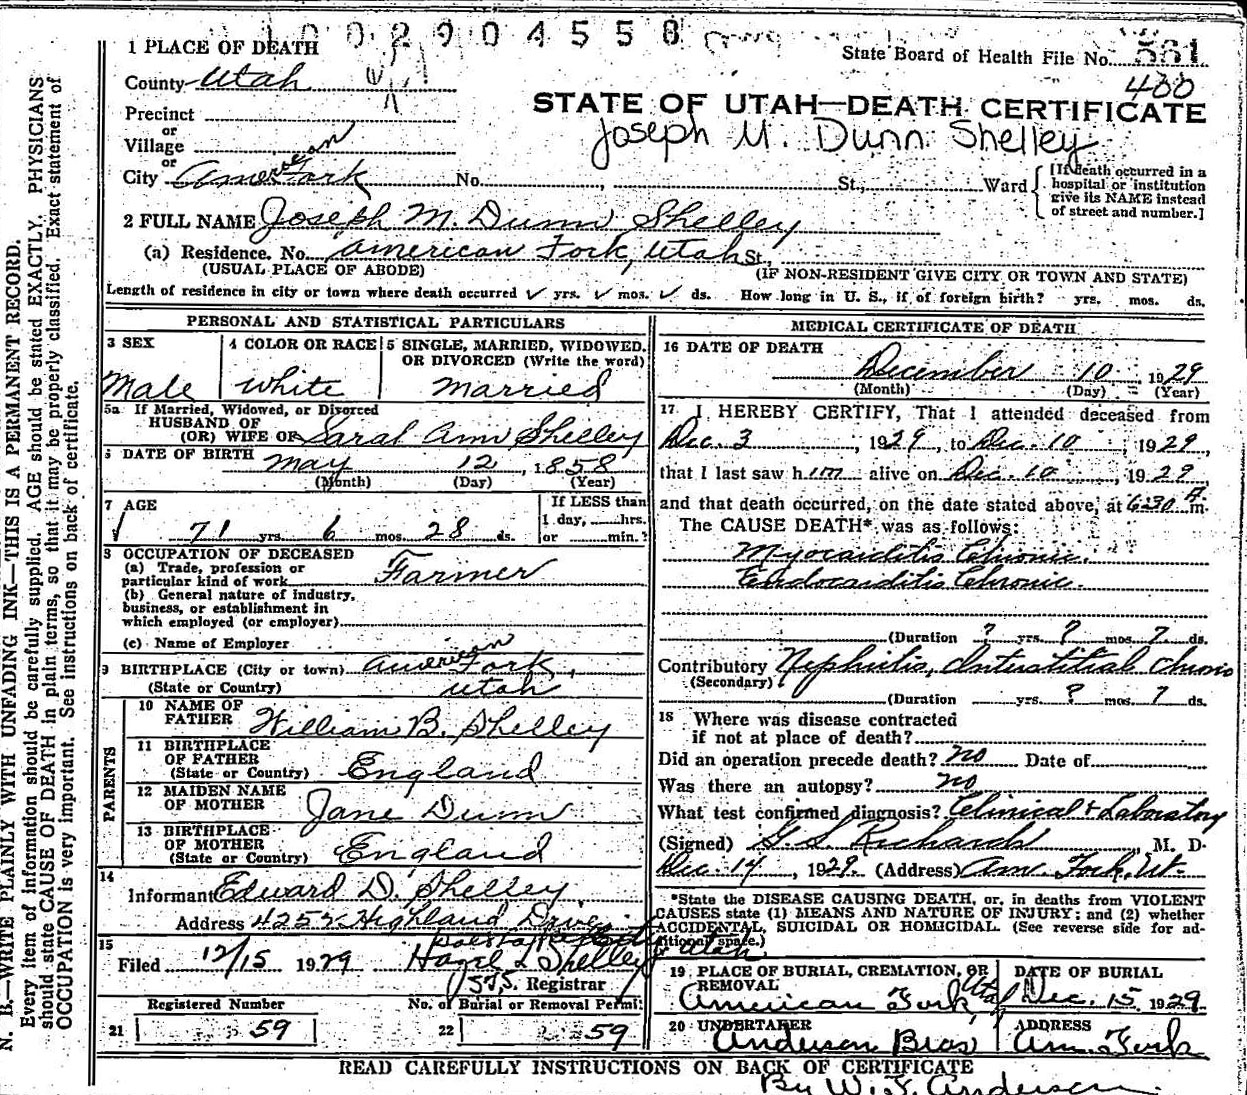 1 0 0 2 9 0 4 5 5 8
1 PLACE OF DEATH
State Board of Health File No. 561
County Utah
400
STATE OF UTAH—DEATH CERTIFICATE
Precinct
Joseph M. Dunn Shelley
or
Village
or
City American Fork No. , St., Ward
[If death occurred in a hospital or institution give its NAME instead of street and number.]
2 FULL NAME Joseph M. Dunn Shelley
(a) Residence. No. American Fork, Utah St.,
(USUAL PLACE OF ABODE) (IF NON-RESIDENT GIVE CITY OR TOWN AND STATE)
Length of residence in city or town where death occurred ✓ yrs. ✓ mos. ✓ ds. How long in U. S., if of foreign birth? yrs. mos. ds.
PERSONAL AND STATISTICAL PARTICULARS
3 SEX
Male
4 COLOR OR RACE
White
5 SINGLE, MARRIED, WIDOWED, OR DIVORCED (Write the word)
Married
5a If Married, Widowed, or Divorced
HUSBAND OF
(OR) WIFE OF Sarah Ann Shelley
6 DATE OF BIRTH May 12, 1858
(Month) (Day) (Year)
7 AGE
✓ 71 yrs. 6 mos. 28 ds.
If LESS than
1 day, hrs.
or min.?
8 OCCUPATION OF DECEASED
(a) Trade, profession or
particular kind of work Farmer
(b) General nature of industry,
business, or establishment in
which employed (or employer)
(c) Name of Employer
9 BIRTHPLACE (City or town) American Fork,
(State or Country) Utah
PARENTS
10 NAME OF
FATHER William B. Shelley
11 BIRTHPLACE
OF FATHER
(State or Country) England
12 MAIDEN NAME
OF MOTHER Jane Dunn
13 BIRTHPLACE
OF MOTHER
(State or Country) England
14
Informant Edward D. Shelley
Address 4252 Highland Drive
Utah.
15
Filed 12/15 1929 Hazel L Shelley
Registrar
Registered Number
21 59
No. of Burial or Removal Permit
22 59
MEDICAL CERTIFICATE OF DEATH
16 DATE OF DEATH
December 10, 1929
(Month) (Day) (Year)
17 I HEREBY CERTIFY, That I attended deceased from
Dec. 3, 1929, to Dec. 10, 1929,
that I last saw him alive on Dec. 10, 1929,
and that death occurred, on the date stated above, at 6:30 A. m.
The CAUSE DEATH* was as follows:
Myocarditis Chronic.
Endocarditis Chronic.
(Duration ? yrs. ? mos. 7 ds.
Contributory Nephritis, Interstitial Chronic
(Secondary)
(Duration yrs. ? mos. 7 ds.
18 Where was disease contracted
if not at place of death?
Did an operation precede death? No Date of
Was there an autopsy? no
What test confirmed diagnosis? Clinical + Laboratory
(Signed) G. S. Richards, M. D.
Dec. 14, 1929. (Address) Am. Fork, Ut.
*State the DISEASE CAUSING DEATH, or, in deaths from VIOLENT
CAUSES state (1) MEANS AND NATURE OF INJURY; and (2) whether
ACCIDENTAL, SUICIDAL OR HOMICIDAL. (See reverse side for additional space.)
19 PLACE OF BURIAL, CREMATION, OR
REMOVAL
American Fork Utah
DATE OF BURIAL
Dec. 15 1929
20 UNDERTAKER
Anderson Bros
ADDRESS
Am. Fork
READ CAREFULLY INSTRUCTIONS ON BACK OF CERTIFICATE
By W. J. Anderson.
N. B.—WRITE PLAINLY WITH UNFADING INK—THIS IS A PERMANENT RECORD.
Every item of information should be carefully supplied. AGE should be stated EXACTLY. PHYSICIANS
should state CAUSE OF DEATH in plain terms, so that it may be properly classified. Exact statement of
OCCUPATION is very important. See instructions on back of certificate.